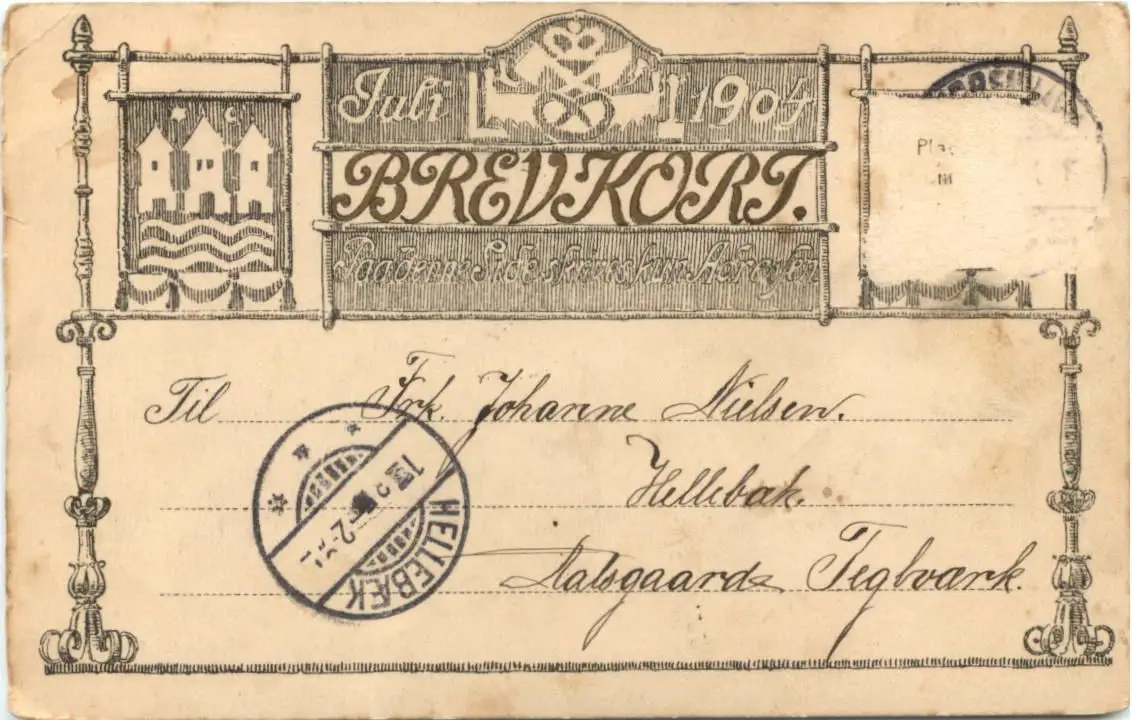 Juli 1904
BREVKORT.
Paa denne Side skrives kun Adressen
Pla
Til Frk. Johanne Nielsen.
Hellebæk.
Aalsgaards Teglværk.
HELLEBÆK